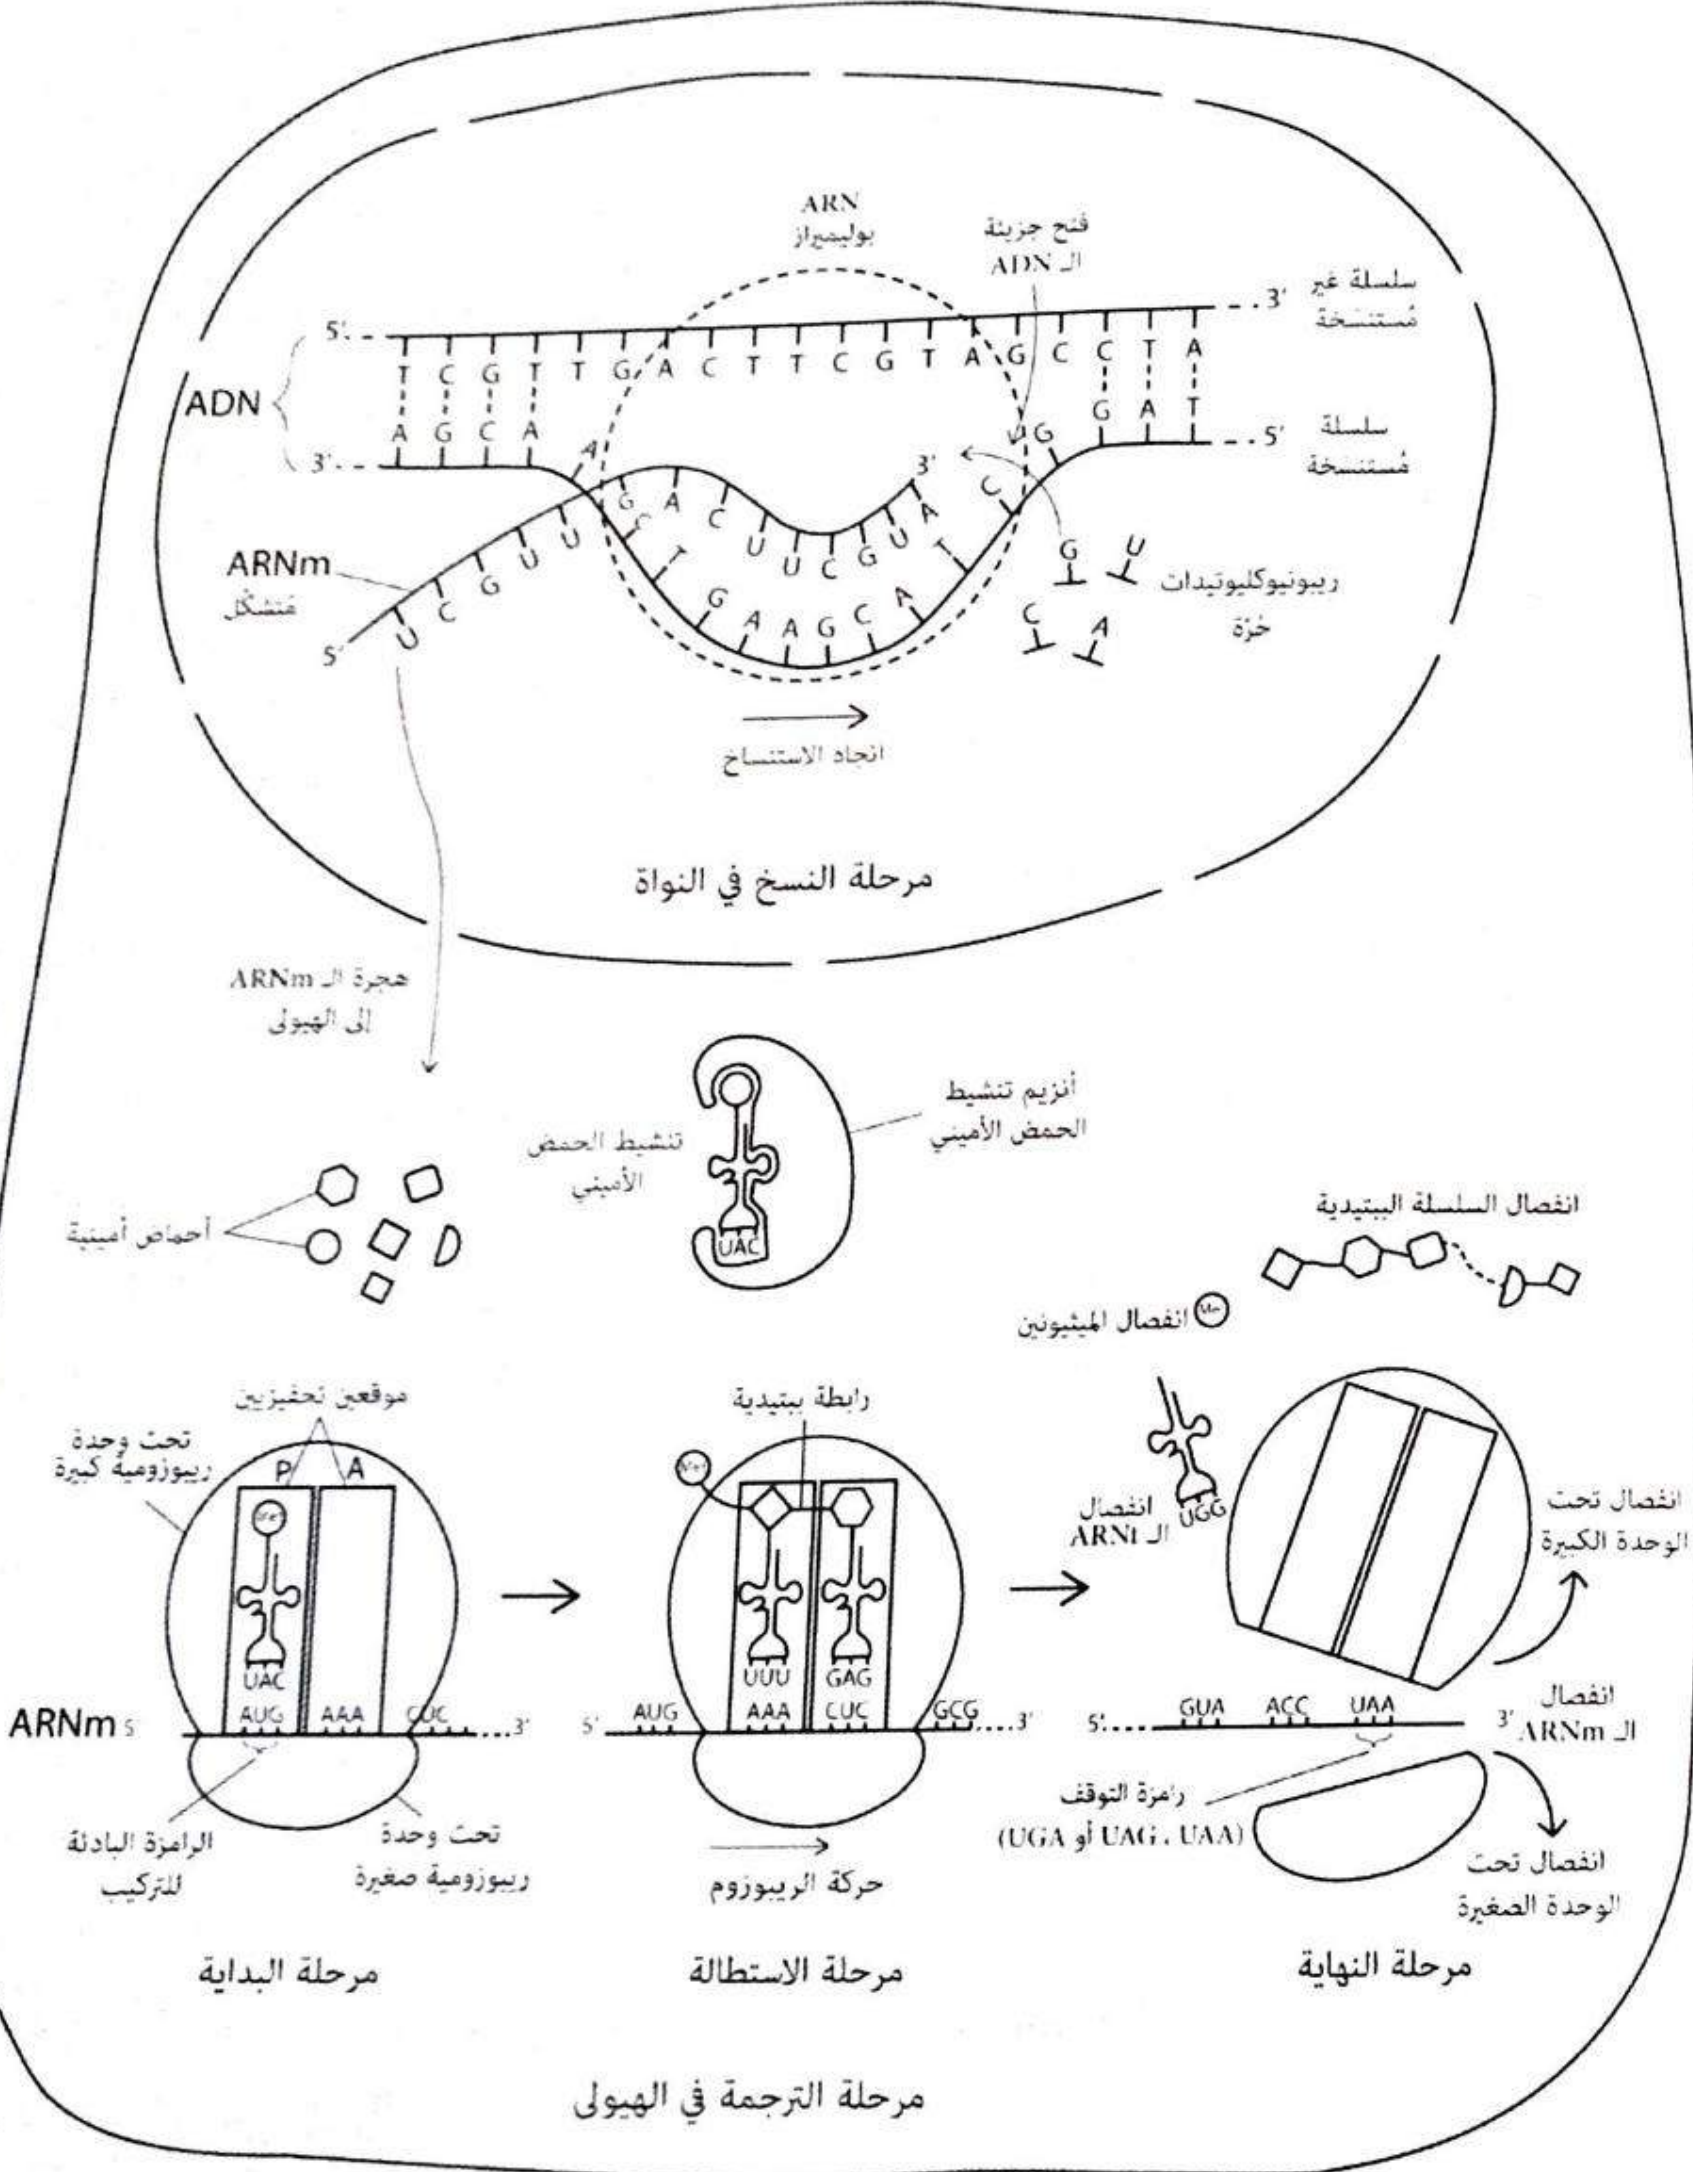 ARN
بوليميراز
فتح جزيئة
الـ ADN
سلسلة غير
مُستنسَخة
5'
3'
T C G T T G A C T T C G T A G C C T A
ADN
A G C A A C T G A A G C A T C G G A T
3'
5'
سلسلة
مُستنسَخة
3'
U C G U U G A C U U C G U A
5'
ARNm
مُتشكّل
G U
C A
ريبونيوكليوتيدات
حُرّة
اتجاه الاستنساخ
مرحلة النسخ في النواة
هجرة الـ ARNm
إلى الهيولى
أنزيم تنشيط
الحمض الأميني
تنشيط الحمض
الأميني
UAC
أحماض أمينية
انفصال السلسلة الببتيدية
انفصال الميثيونين
موقعين تحفيزيين
تحت وحدة
ريبوزومية كبيرة
P A
UAC
ARNm 5'
AUG AAA CUC
3'
الرامزة البادئة
للتركيب
تحت وحدة
ريبوزومية صغيرة
مرحلة البداية
رابطة ببتيدية
Met
UUU GAG
5' AUG AAA CUC GCG 3'
حركة الريبوزوم
مرحلة الاستطالة
انفصال
الـ ARNt
UGG
انفصال تحت
الوحدة الكبيرة
5' GUA ACC UAA 3'
انفصال
الـ ARNm
رامزة التوقف
(UAA ، UAG أو UGA)
انفصال تحت
الوحدة الصغيرة
مرحلة النهاية
مرحلة الترجمة في الهيولى